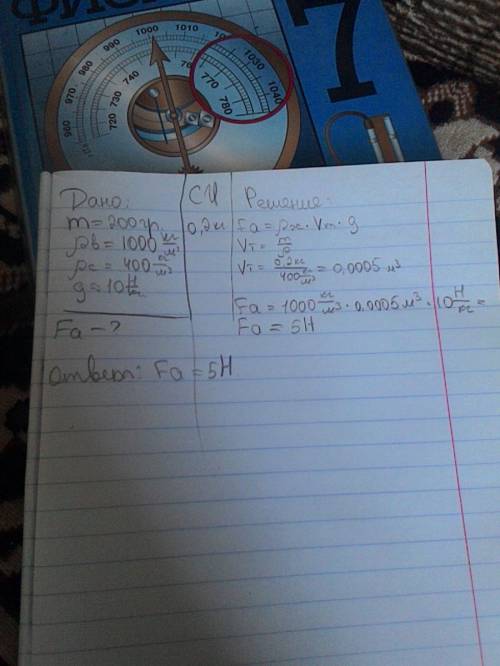 ФИЗИ
7
960 970 980 990 1000 1010 1030 1040
720 730 740 760 770 780
Дано:
m = 200 гр.
ρв = 1000 кг/м³
ρс = 400 кг/м³
g ≈ 10 Н/кг
Fa – ?
СИ
0,2 кг
Решение:
Fa = ρж · Vт · g
Vт = m/ρ
Vт = 0,2кг / 400 кг/м³ = 0,0005 м³
Fa = 1000 кг/м³ · 0,0005 м³ · 10 Н/кг =
Fa = 5Н
ответ: Fa = 5Н